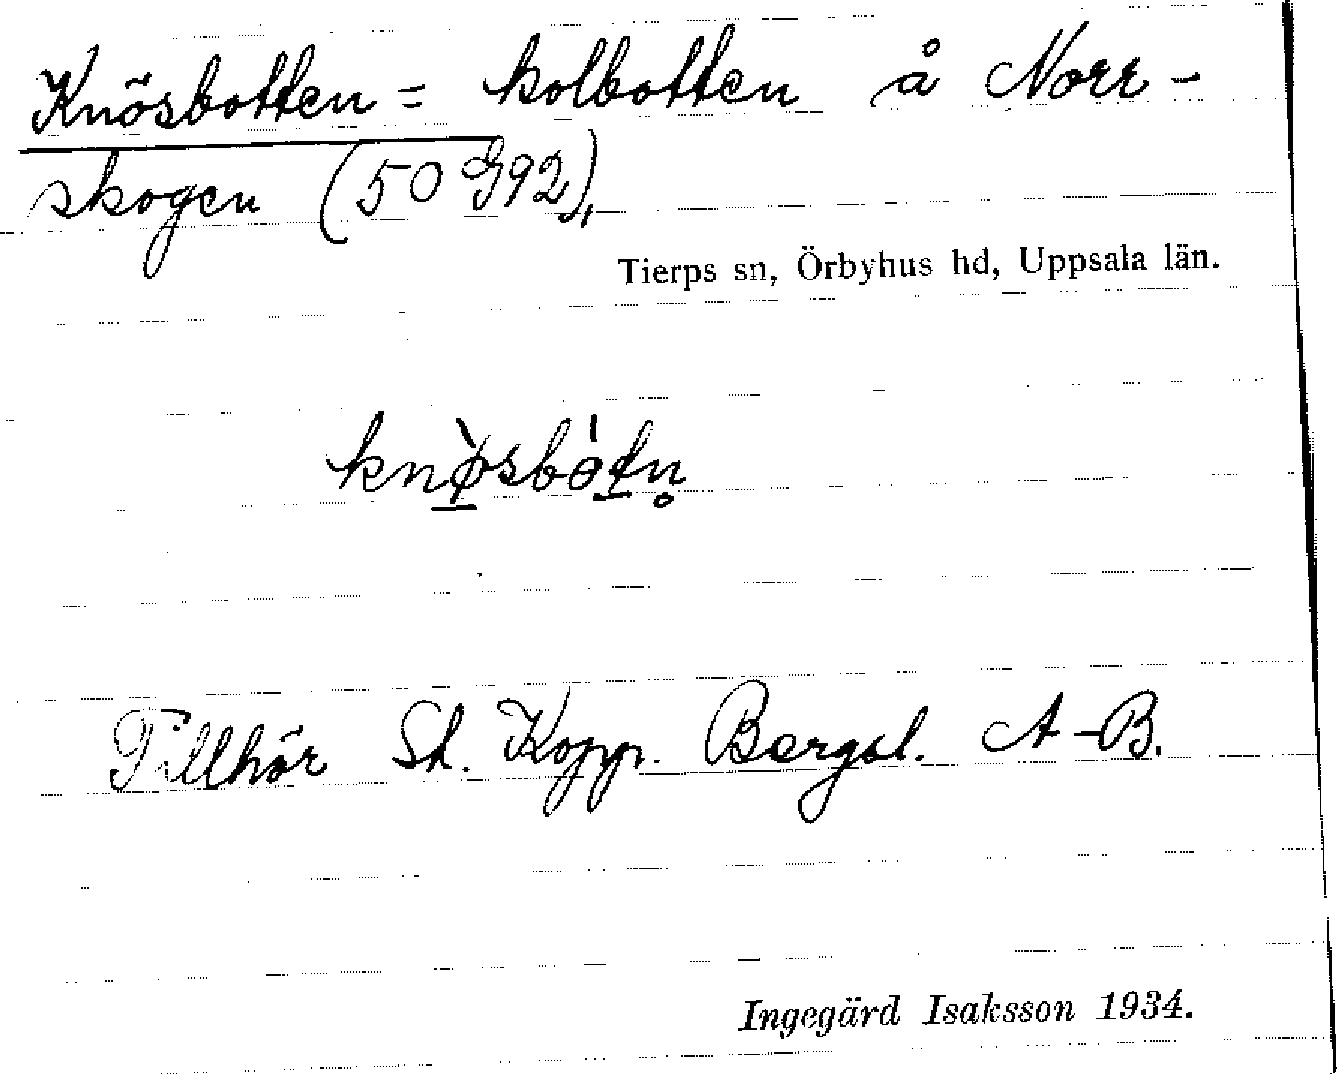 Knösbotten = kolbotten å Norr-
skogen (50 G92),
Tierps sn, Örbyhus hd, Uppsala län.
knø̀sbòtn̥
Tillhör St. Kopp. Bergsl. A-B.
Ingegärd Isaksson 1934.